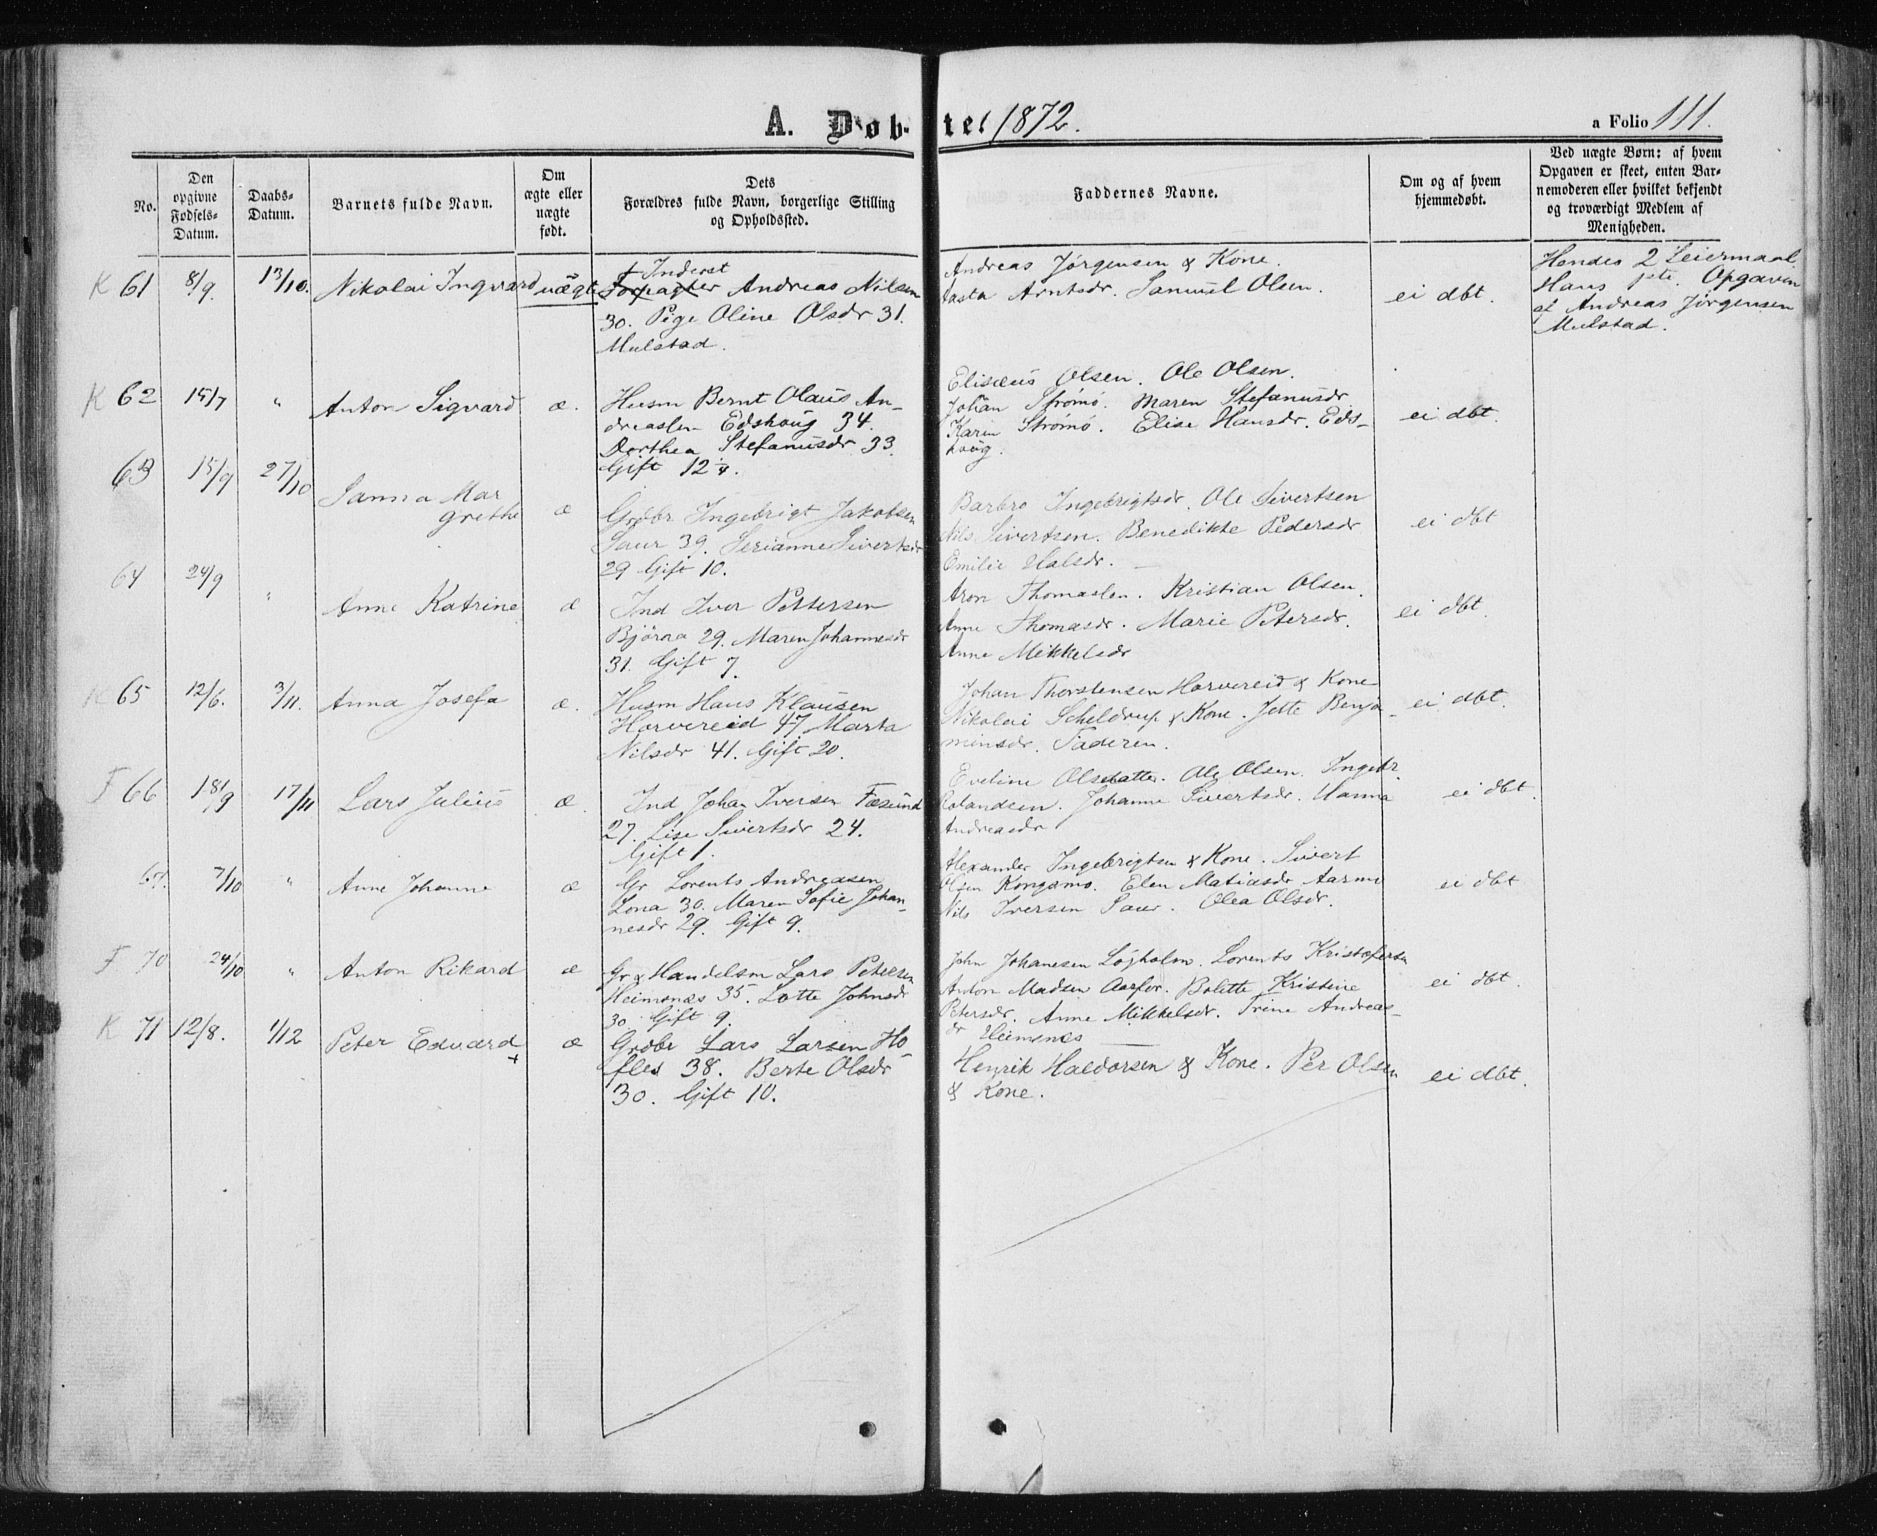 A. Døb- tel 1872.
a Folio 111.
No.
Den opgivne Fødsels-Datum.
Daabs-Datum.
Barnets fulde Navn.
Om ægte eller uægte født.
Dets Forældres fulde Navn, borgerlige Stilling og Opholdssted.
Faddernes Navne.
Om og af hvem hjemmedøbt.
Ved uægte Børn: af hvem Opgaven er skeet, enten Barnemoderen eller hvilket bekjendt og troværdigt Medlem af Menigheden.
K 61 8/9. 13/10. Nikolai Ingvard uægte
+ Inderst
Forpagter Andreas Nilsen
30. Pige Oline Olsdr 31.
Mulstad.
Andreas Jørgensen & Kone.
Aasta Arntsdr. Samuel Olsen.
ei dbt.
Hendes 2 Leiermaal.
Hans 1ste. Opgaven
af Andreas Jørgensen
Mulstad.
K 62 15/7 " Anton Sigvard æ.
Husm Bernt Olaus An-
dreassen Edshoug 34.
Dorthea Stefanusdr 33.
Gift 12 1/4.
Elisæus Olsen. Ole Olsen.
Johan Strømø. Maren Stefanusdr
Karin Strømø. Elise Hansdr. Eds-
houg.
ei dbt.
63 15/9 27/10 Sanna Mar
grethe æ
Grdbr Ingebrigt Jakobsen
Saur 39. Serianne Sivertsdr
29 Gift 10.
Barbro Ingebrigtsdr. Ole Sivertsen
Nils Sivertsen. Benedikte Pedersdr
Emilie Halsdr.
ei dbt
64 24/9 " Anne Katrine æ
Ind Iver Pettersen
Bjørna 29. Maren Johannesdr
31. Gift 7
Aron Thomassen. Kristian Olsen.
Anne Thomasdr. Marie Petersdr.
Anne Mikkelsdr
ei dbt.
K 65 12/6. 3/11. Anna Josefa æ.
Husm Hans Klausen
Horvereid 47 Marta
Nilsdr 41. Gift 20.
Johan Thorstensen Horvereid & Kone
Nikolai Scheldrup & Kone. Jette Benja-
minsdr. Faderen.
ei dbt.
F 66 18/9 17/11 Lars Julius æ.
Ind Johan Iversen Føsund
27. Lise Sivertsdr 24.
Gift 1.
Eveline Olsdatter. Ole Olsen. Ingebr.
Rolandsen. Johanna Sivertsdr. Hanna
Andreasdr
ei dbt.
67. 7/10 " Anne Johanne æ
Gr Lorents Andreasen
Lona 30. Maren Sofie Johan-
nesdr 29. Gift 9.
Alexander Ingebrigtsen & Kone. Sivert
Olsen Kongsmo. Elen Matiasdr Aarmo
Nils Iversen Saur. Olea Olsdr.
ei dbt
F 70 24/10 " Anton Rikard æ
Gr & Handelsm Lars Petersen
Heimsnæs 35. Lotte Johnsdr
30 Gift 9.
John Johanesen Løjholm. Lorents Kristofersen
Anton Madsen Aarfor. Bolette Kristine
Petersdr. Anne Mikkelsdr. Trine Andreas-
dr Heimsnæs
ei dbt.
K 71 12/8. 1/12 Peter Edvard + æ
Grdbr Lars Larsen Ho-
fles 38. Berte Olsdr
30. Gift 10.
Henrik Haldorsen & Kone. Per Olsen
& Kone.
ei dbt.